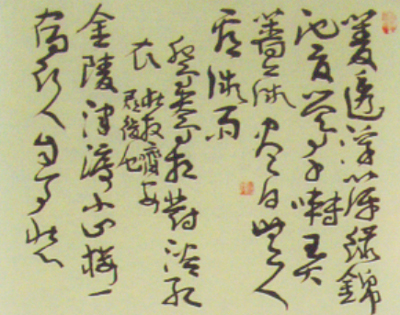 菱透浮萍綠錦
池夏鶯千囀弄
薔薇盡日無人
看微雨
鴛鴦相對浴紅
衣 杜牧齊安
郡後池
金陵津渡小山樓一
宿行人自可愁